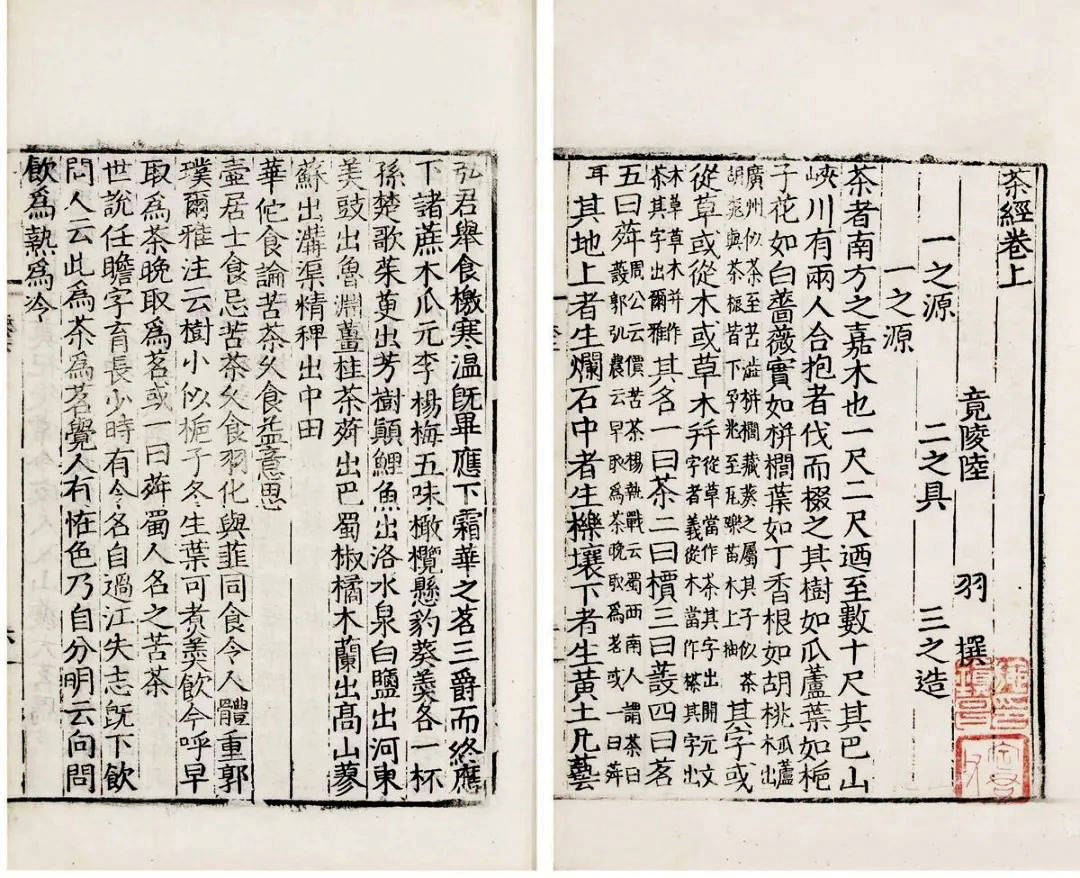 茶經卷上
竟陵陸 羽 撰
一之源 二之具 三之造
一之源
茶者南方之嘉木也一尺二尺迺至數十尺其巴山
峽川有兩人合抱者伐而掇之其樹如瓜蘆葉如梔
子花如白薔薇實如栟櫚葉如丁香根如胡桃瓜蘆木出
廣州似茶至苦澁栟櫚藏葵之屬其子似茶胡桃與茶根皆下孕兆至瓦礫苗木上抽其字或
從草或從木或草木幷從草當作茶其字出開元文字者義從木當作𣗪其字出
木草草木并作荼其字出爾雅其名一曰茶二曰檟三曰蔎四曰茗
五曰荈周公云檟苦茶楊執戟云蜀西南人謂茶曰蔎郭弘農云早取爲茶晚取爲茗或一曰荈
耳其地上者生爛石中者生櫟壤下者生黃土凡藝
弘君舉食檄寒溫旣畢應下霜華之茗三爵而終應
下諸蔗木瓜元李楊梅五味橄欖懸豹葵羹各一杯
孫楚歌茱萸出芳樹顚鯉魚出洛水泉白鹽出河東
美豉出魯淵薑桂茶荈出巴蜀椒橘木蘭出高山蓼
蘇出溝渠精稗出中田
華佗食論苦茶久食益意思
壺居士食忌苦茶久食羽化與韮同食令人體重郭
璞爾雅注云樹小似梔子冬生葉可煮羹飲今呼早
取爲茶晚取爲茗或一曰荈蜀人名之苦茶
世說任瞻字育長少時有令名自過江失志旣下飲
問人云此爲茶爲茗覺人有恠色乃自分明云向問
飲爲熱爲冷